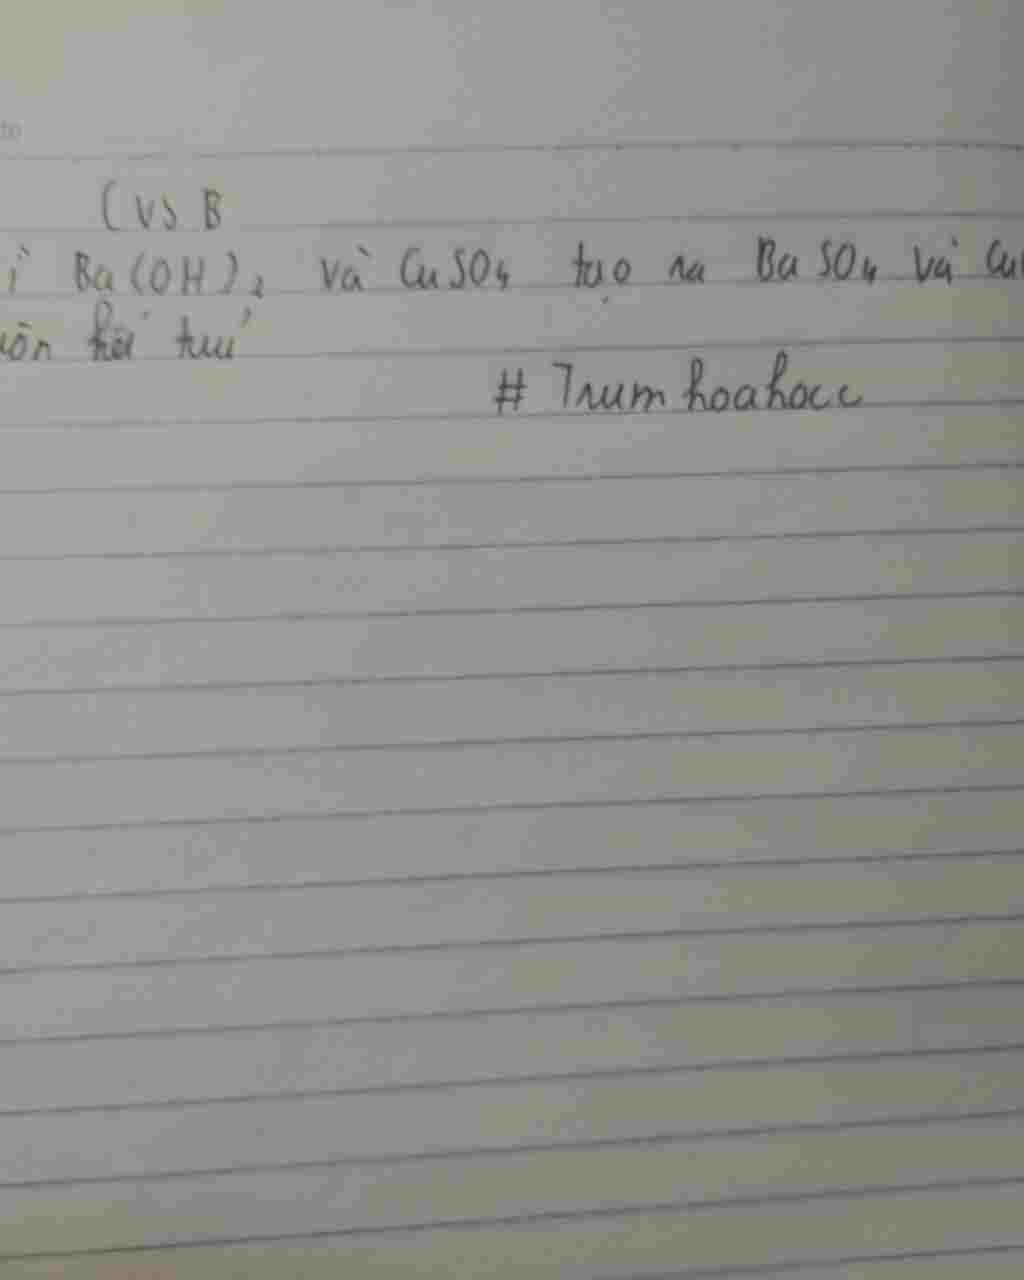 C vs B
ì Ba(OH)₂ và CuSO₄ tạo ra BaSO₄ và Cu
hết tuá
# Trumhoahocc